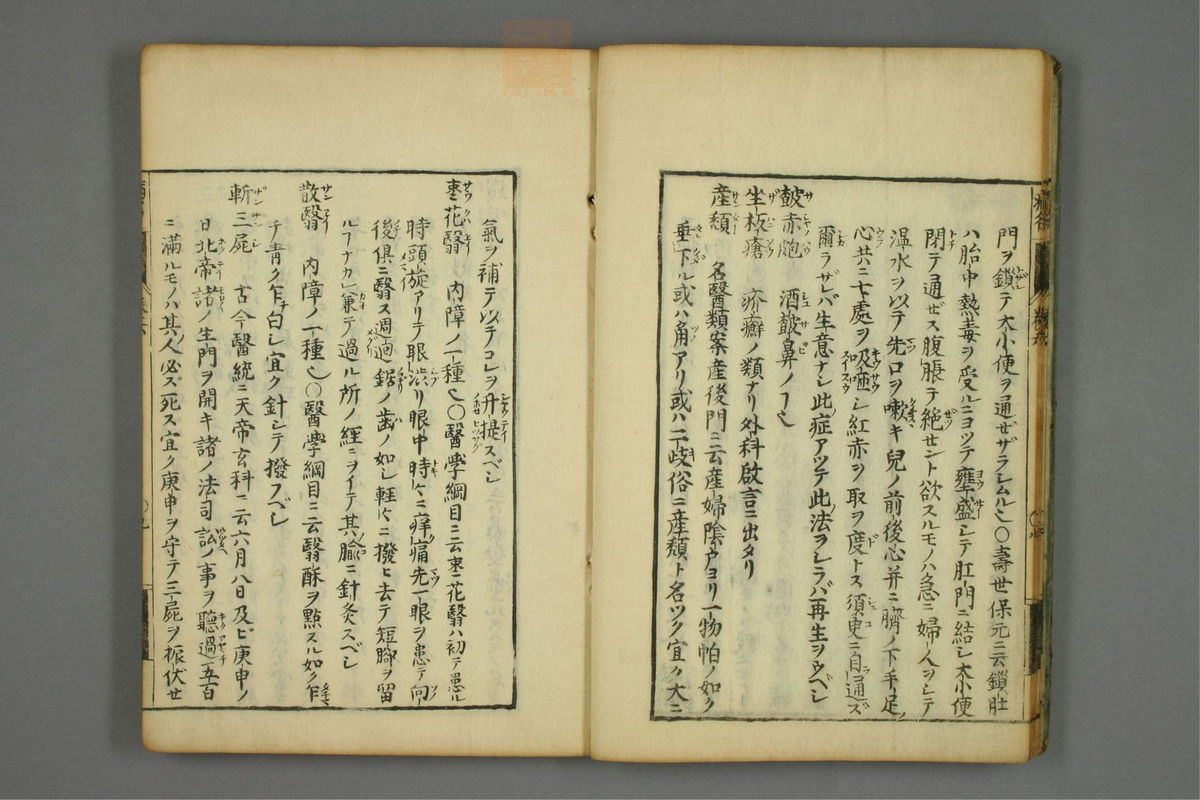 門ヲ鎖テ大小便ヲ通ゼザラシムル也〇壽世保元ニ云鎖肚
ハ胎中熱毒ヲ受ルニヨツテ壅盛シテ肛門ニ結シ大小便
閉テ通ゼス腹脹テ絶セント欲スルモノハ急ニ婦人ヲシテ
温水ヲ以テ先ロヲ嗽キ兒ノ前後心并ニ臍ノ下手足
心共ニ七處ヲ吸咂シ紅赤ヲ取ヲ度トス須臾ニ自通ズ
爾ラザレバ生意ナシ此症アツテ此法ヲシラバ再生ヲウベシ
皶赤皰 酒皶鼻ノ
坐板瘡 疥癬ノ類ナリ外科啟言ニ出タリ
産㿗 名醫類案産後門ニ云産婦陰戸ヨリ一物帕ノ如ク
垂下ル或ハ角アリ或ハ二歧俗ニ産㿗ト名ツク宜ク大ニ
氣ヲ補テ以テコレヲ升提スベシ
棗花翳 内障ノ一種也〇醫學綱目ニ云棗花翳ハ初テ患ル
時頭旋アリテ眼渋リ眼中時々ニ痒痛先一眼ヲ患テ向
後俱ニ翳ス週迴鋸ノ歯ノ如シ軽々ニ撥ヒ去テ短脚ヲ留
ルフナカレ兼テ過ル所ノ經ニヲイテ其腧ニ針灸スベシ
散翳 内障ノ一種也〇醫學綱目ニ云翳酥ヲ點スル如ク乍
チ青ク乍チ白シ宜ク針シテ撥フベシ
斬三屍 古今醫統ニ天帝玄科ニ云六月八日及ビ庚申ノ
日北帝諸ノ生門ヲ開キ諸ノ法司訟ノ事ヲ聽過五百
ニ滿ルモノハ其人必ズ死ス宜ク庚申ヲ守テ三屍ヲ振伏セ